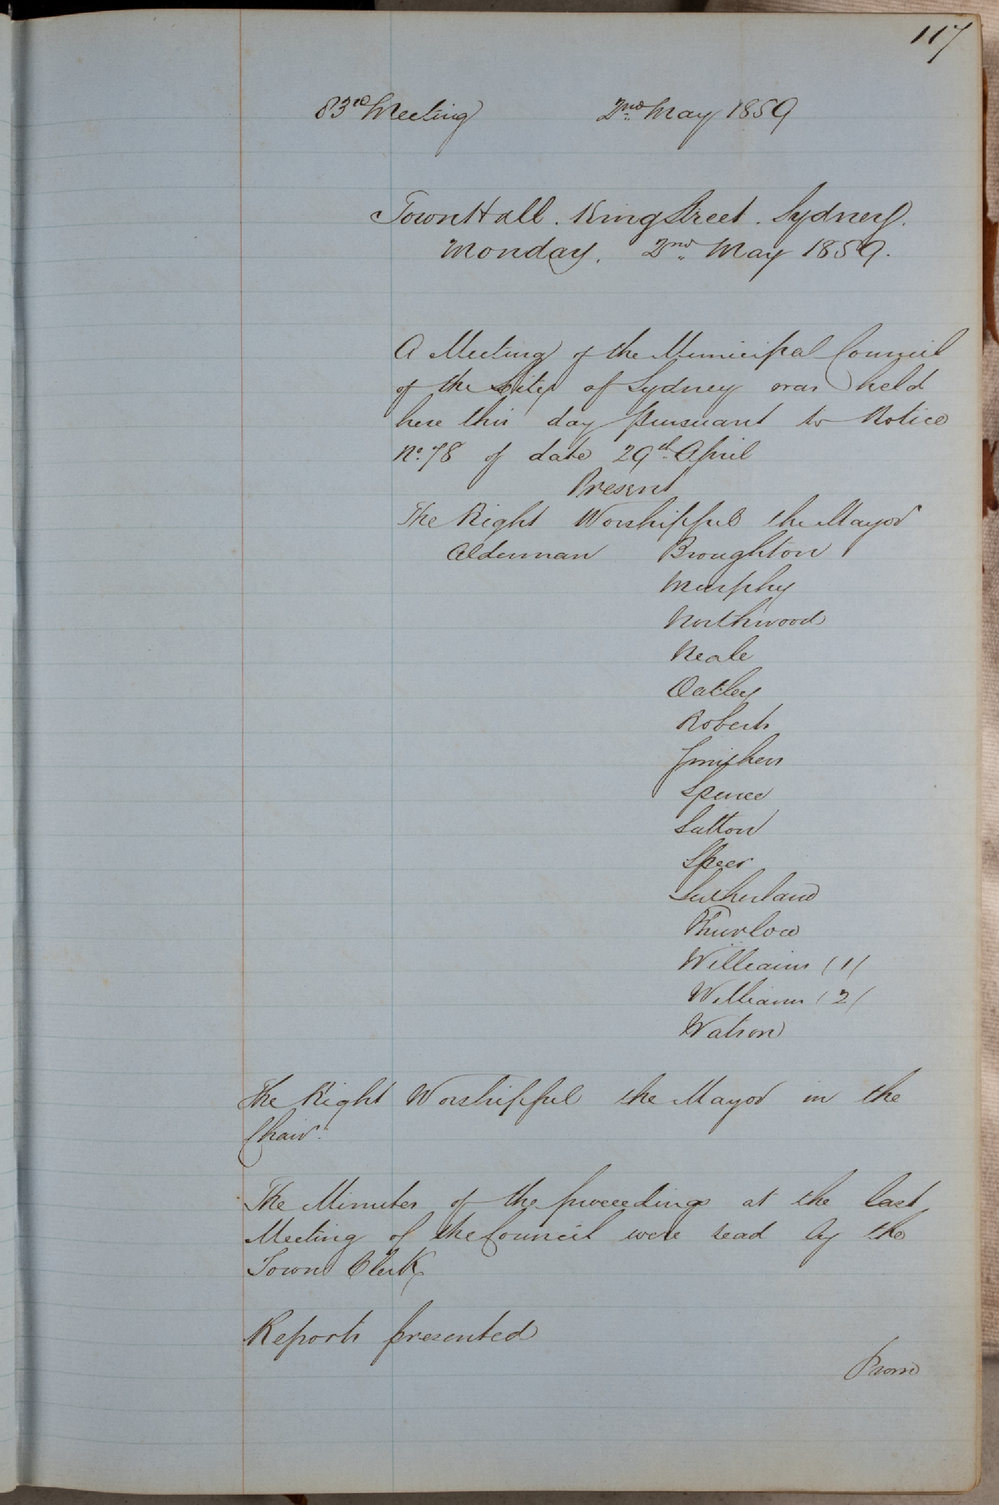 117
83rd Meeting 2nd May 1859
Town Hall. King Street. Sydney.
Monday. 2nd May 1859.
A Meeting of the Municipal Council
of the City of Sydney was held
here this day pursuant to Notice
No. 78 of date 29th April
Present
The Right Worshipful the Mayor
Alderman Broughton
Murphy
Northwood
Neale
Oatley
Roberts
Smithers
Spence
Sutton
Speer
Sutherland
Thurlow
Williams (1)
Williams (2)
Watson
The Right Worshipful the Mayor in the
Chair.
The Minutes of the proceedings at the last
Meeting of the Council were read by the
Town Clerk
Reports presented
From